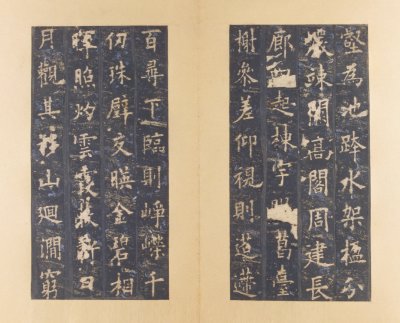 壑為池跨水架楹分
巖竦闕高閣周建長
廊四起棟宇葛臺
榭參差仰視則迢遰
百尋下臨則崢嶸千
仞珠璧交暎金碧相
暉照灼雲霞蔽虧日
月觀其移山迴澗窮